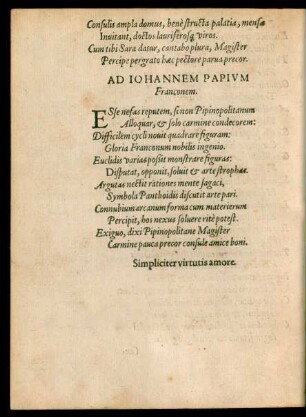 Consulis ampla domus, benè structa palatia, mensæ
Inuitant, doctos lauriferosq; viros.
Cum tibi Sara datur, cantabo plura, Magister
Percipe pergrato hæc pectore parua precor.
AD IOHANNEM PAPIVM
Franconem.
ESse nefas reputem, si non Pipinopolitanum
Alloquar, & solo carmine condecorem:
Difficilem cycli nouit quadrare figuram:
Gloria Franconum nobilis ingenio.
Euclidis varias posuit monstrare figuras:
Disputat, opponit, soluit & arte strophas.
Argutas nectit rationes mente sagaci,
Symbola Panthoidis discutit arte pari.
Connubium arcanum forma cum materierum
Percipit, hos nexus soluere ritè potest.
Exiguo, dixi Pipinopolitane Magister
Carmine pauca precor consule amice boni.
Simpliciter virtutis amore.